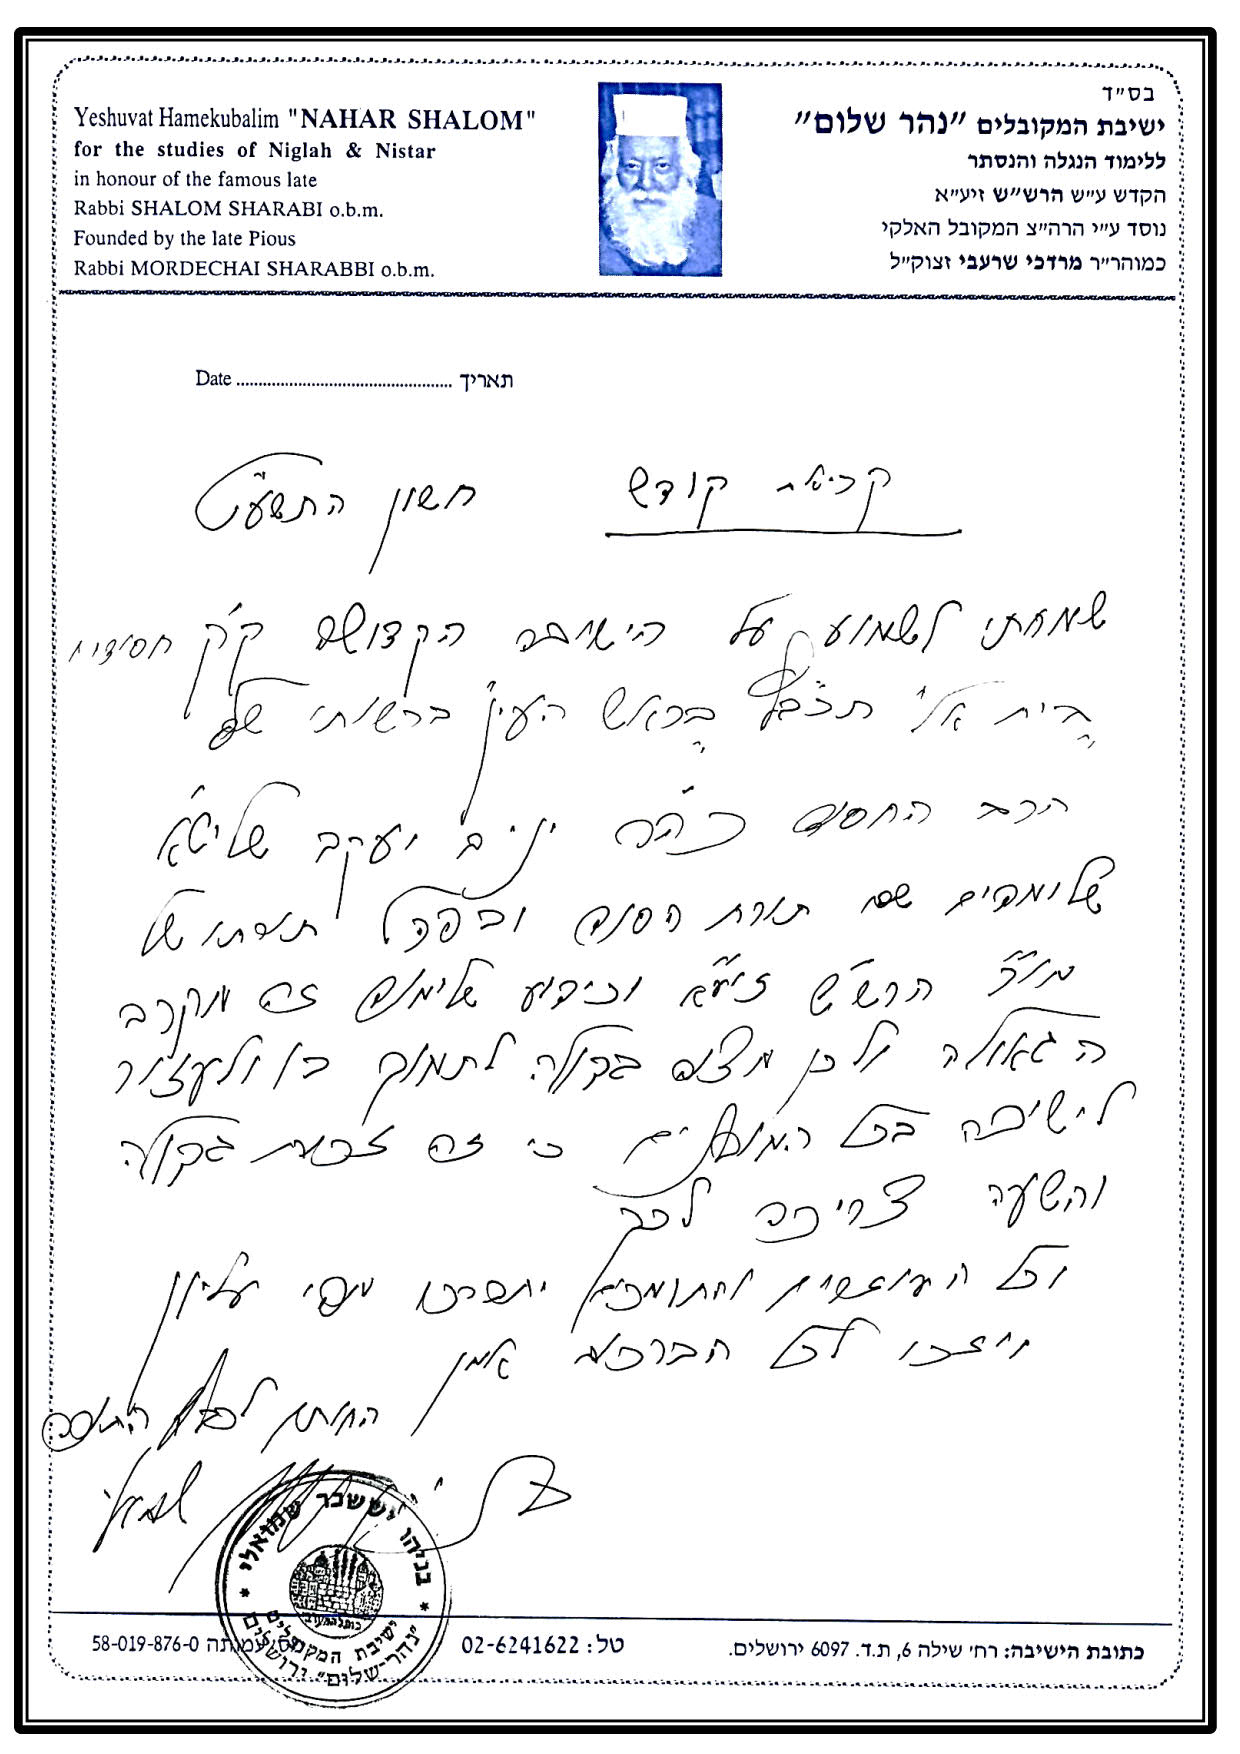 בס״ד
ישיבת המקובלים ״נהר שלום״
ללימוד הנגלה והנסתר
הקדש ע״ש הרש״ש זיע״א
נוסד ע״י הרה״צ המקובל האלקי
כמוהר״ר מרדכי שרעבי זצוק״ל
Yeshuvat Hamekubalim "NAHAR SHALOM"
for the studies of Niglah & Nistar
in honour of the famous late
Rabbi SHALOM SHARABI o.b.m.
Founded by the late Pious
Rabbi MORDECHAI SHARABBI o.b.m.
Date ................................................ תאריך
קריאת קודש חשון התשע״ט
שמחתי לשמוע על הישיבה הקדושה ק״ק חסידים
בית אל תכב״ץ בראש העין ברשותו של
הרב החסיד כהר״ר יעקב שליט״א
שלומדים שם תורת הסוד ובפרט תורתו של
מור״ר הרש״ש זיע״א וכידוע שלימוד זה מקרב
הגאולה ולכן מצוה גדולה לתמוך בו ולעזור
לישיבה בכל המובנים כי זה זכות גדולה
והשעה צריכה לכך
וכל העוזרים והתומכים יתברכו מפי עליון
ויזכו לכל הברכות אמן
החותם לכבוד התורה
בניהו יששכר שמואלי
ישיבת המקובלים
״נהר-שלום״ ירושלים
כתובת הישיבה: רח׳ שילה 6, ת.ד. 6097 ירושלים. טל: 02-6241622 עמותה 58-019-876-0